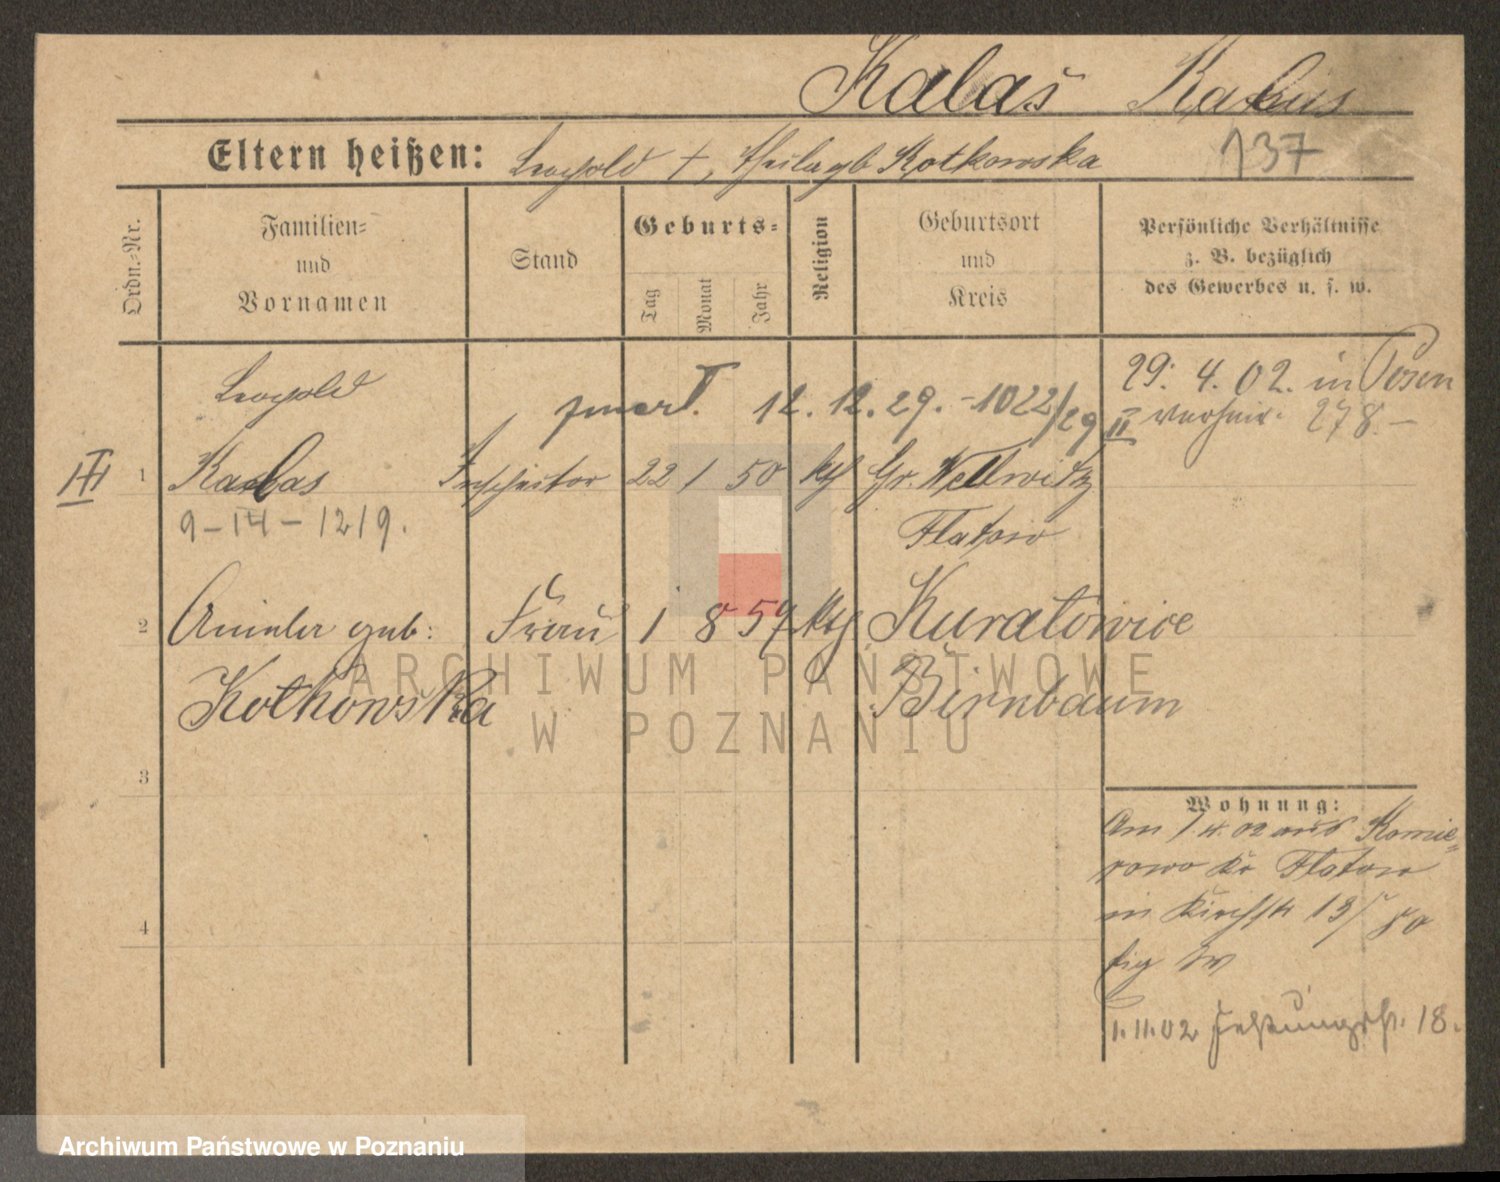 Kalaš Kalas
Eltern heißen: Leopold †, geb Kotkowska
137
Ordn.-Nr.
Familien-
und
Vornamen
Stand
Geburts-
Tag
Monat
Jahr
Religion
Geburtsort
und
Kreis
Persönliche Verhältnisse
z. B. bezüglich
des Gewerbes u. s. w.
Leopold
12.12.29. -1022/29
29. 4. 02. in Posen
II verheir. 278.-
III 1 Kalas Inspector 22 1 50 kth Gr. Wellwitz
9-IH-1219.
Flatow
2 geb: Frau 1 8 57 kth Kuratowice
Kotkowska Birnbaum
3
4
Wohnung:
Am 1.4.02 aus Komie-
rowo Kr Flatow
in Kirchstr 13/
1.11.02 18.
ARCHIWUM PAŃSTWOWE
W POZNANIU
Archiwum Państwowe w Poznaniu